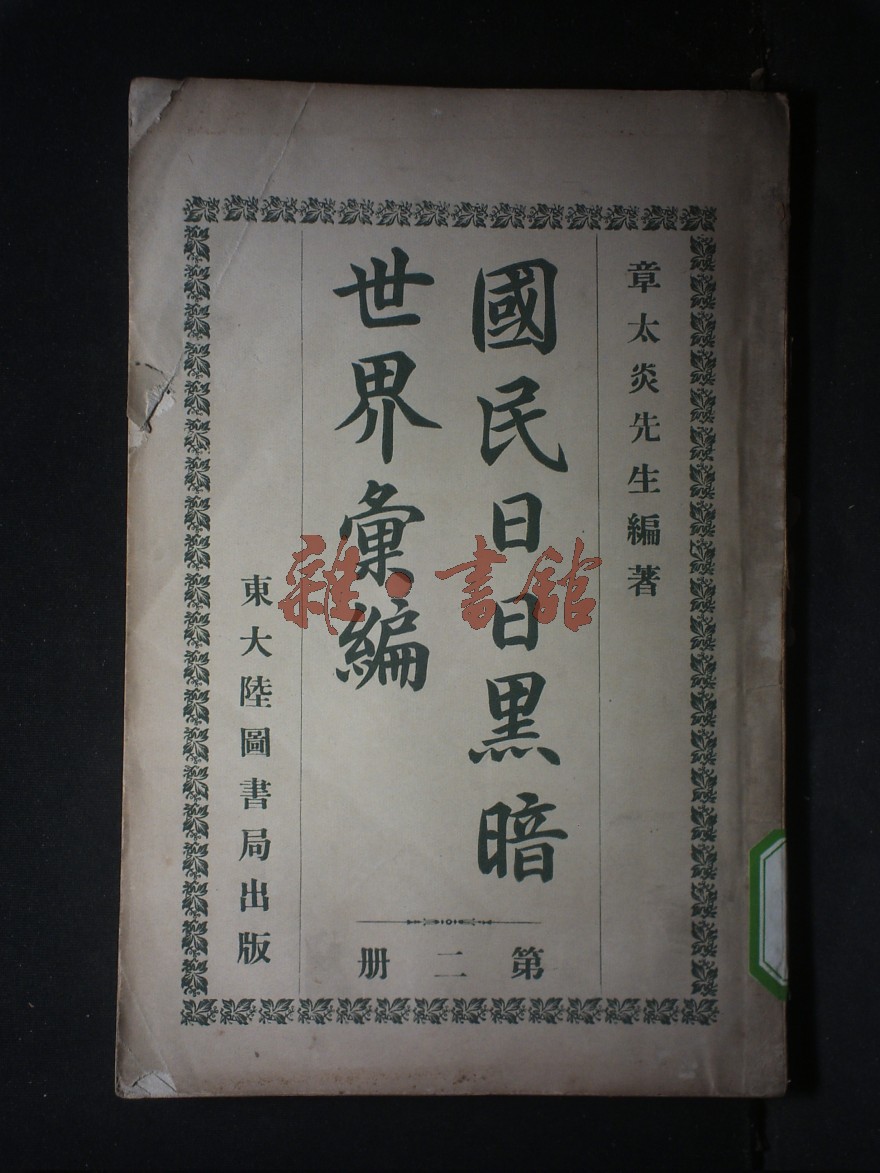 章太炎先生編著
國民日日黑暗
世界彙編
第二册
東大陸圖書局出版
雜·書館